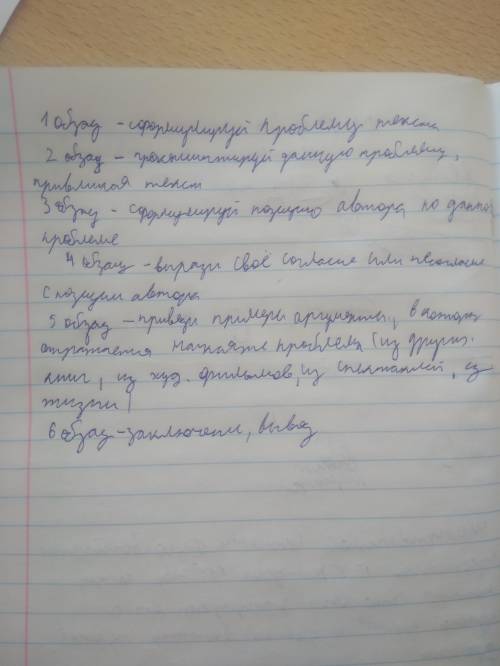 1 обзац - сформулируй проблему текста
2 обзац - прокомментируй данную проблему,
привлекая текст
3 обзац - сформулируй позицию автора по данной
проблеме
4 обзац - вырази своё согласие или несогласие
с позиции автора
5 обзац - приведи примеры аргументы, в которых
отражается проблема (из других
книг, из худ. фильмов, из спектаклей, из
жизни)
6 обзац - заключение, вывод